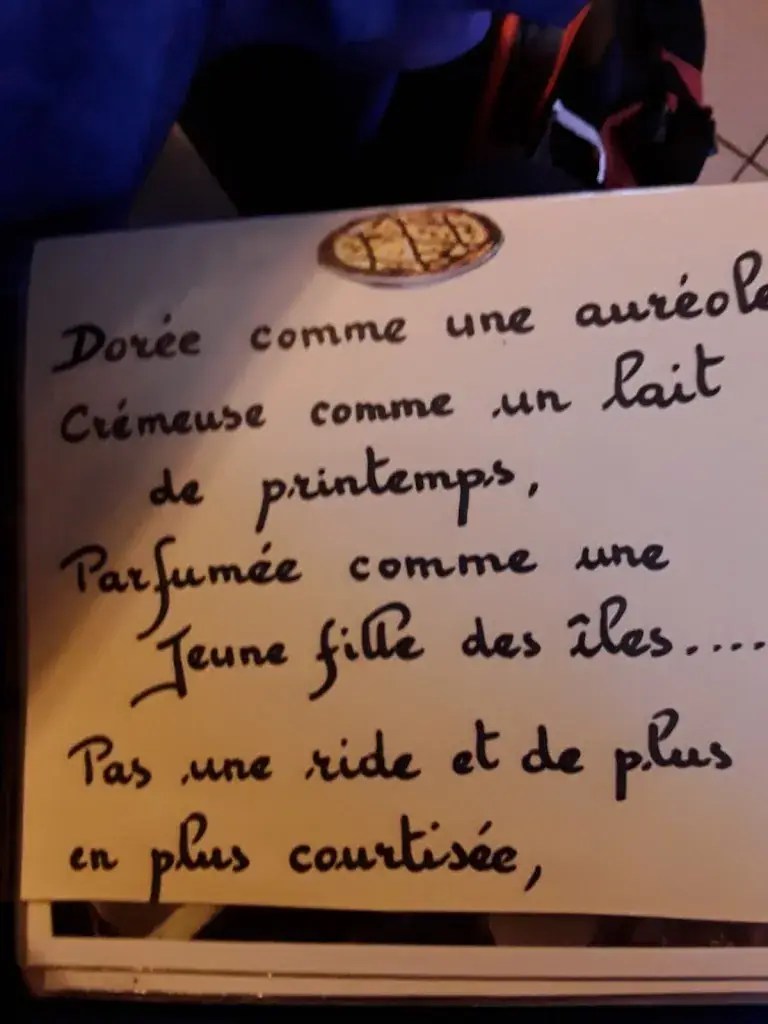 Dorée comme une auréole
Crémeuse comme un lait
de printemps,
Parfumée comme une
Jeune fille des îles....
Pas une ride et de plus
en plus courtisée,